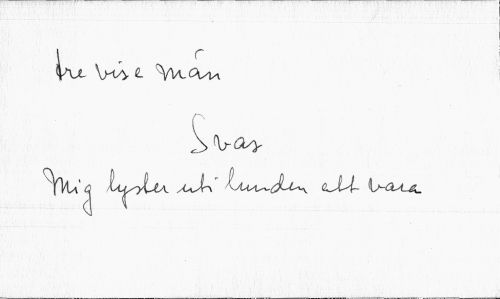 tre vise män
Svar
Mig lyster uti lunden att vara